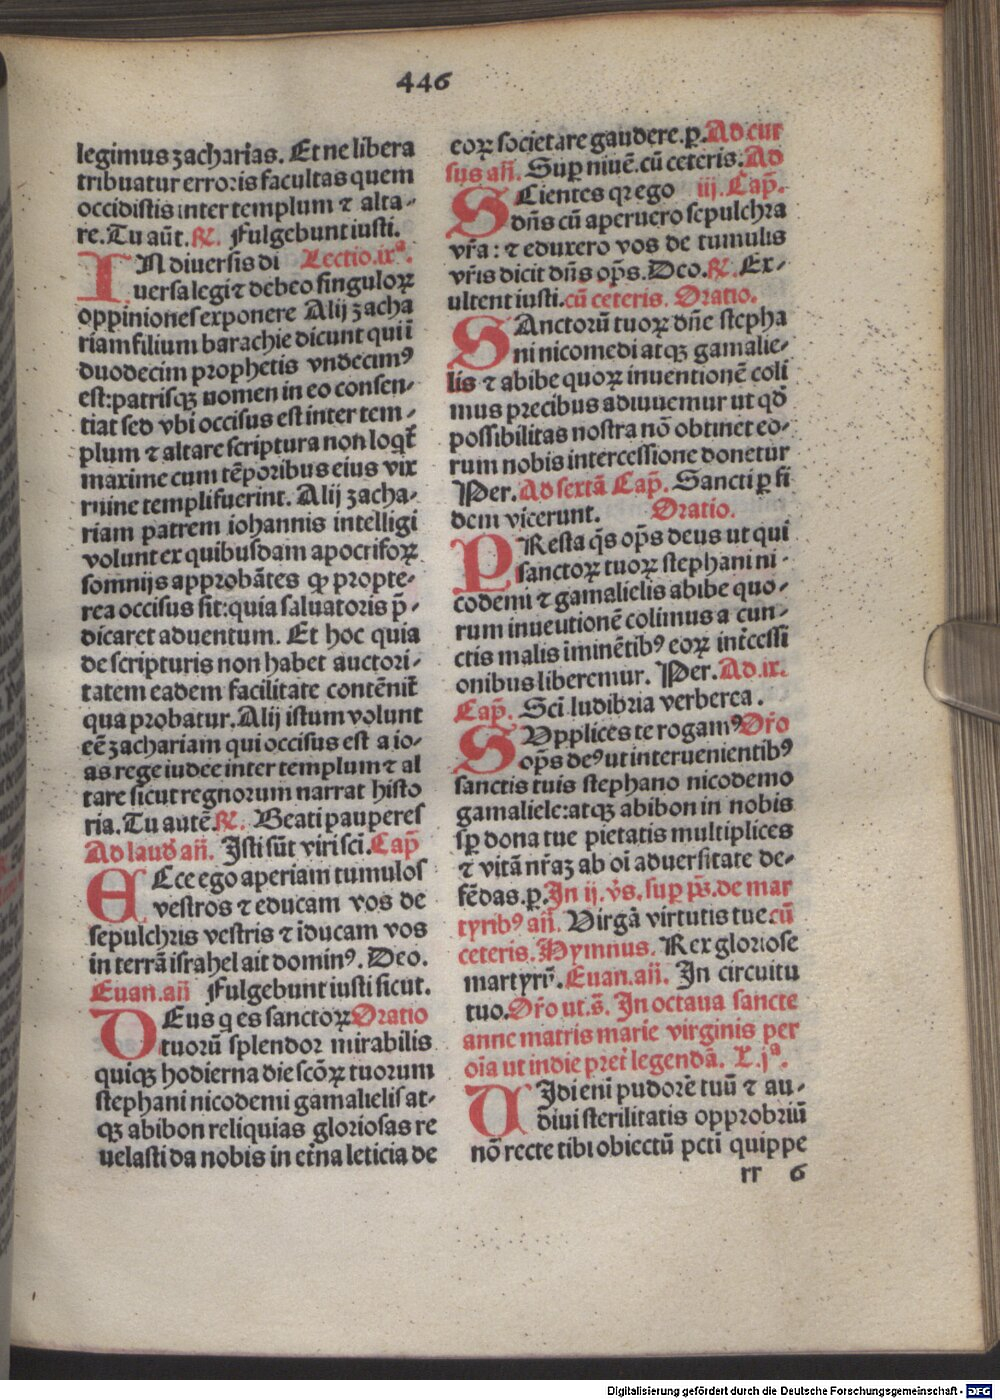 446
legimus zacharias. Et ne libera
tribuatur erroris facultas quem
occidistis inter templum ⁊ alta-
re. Tu aūt. ℟. Fulgebunt iusti.
IN diuersis di Lectio.ixª.
uersa legi ⁊ debeo singuloꝝ
oppiniones exponere Alij zacha
riam filium barachie dicunt qui ī
duodecim prophetis vndecimꝰ
est:patrisqꝫ nomen in eo consen-
tiat sed vbi occisus est inter tem-
plum ⁊ altare scriptura non loqt̄
maxime cum tēporibus eius vix
ruine templi fuerint. Alij zacha-
riam patrem iohannis intelligi
volunt ex quibusdam apocrifoꝝ
somnijs approbātes ꝙ propte-
rea occisus sit:quia saluatoris p̄-
dicaret aduentum. Et hoc quia
de scripturis non habet auctori-
tatem eadem facilitate contēnit̄
qua probatur. Alij istum volunt
eē zachariam qui occisus est a io-
as rege iudee inter templum ⁊ al
tare sicut regnorum narrat histo
ria. Tu autē. ℟. Beati pauperes
Ad laud̄ añ. Isti sūt viri sc̄i. Cap̄
ECce ego aperiam tumulos
vestros ⁊ educam vos de
sepulchris vestris ⁊ īducam vos
in terrā israhel ait dominꝰ. Deo.
Euan.añ Fulgebunt iusti sicut.
DEus q es sanctoꝝ Oratio
tuorū splendor mirabilis
quiqꝫ hodierna die scōꝝ tuorum
stephani nicodemi gamalielis at-
qꝫ abibon reliquias gloriosas re
uelasti da nobis in et̄na leticia de
eoꝝ societare gaudere.ꝑ. Ad cur
sus añ. Suꝑ niuē.cū ceteris. Ad
SCientes qꝛ ego iij. Cap̄.
dn̄s cū aperuero sepulchra
vr̄a: ⁊ eduxero vos de tumulis
vr̄is dicit dn̄s op̄s. Deo. ℟. Ex-
ultent iusti. cū ceteris. Oratio.
SAnctorū tuoꝝ dn̄e stepha
ni nicomedi atqꝫ gamalie-
lis ⁊ abibe quoꝝ inuentionē coli
mus precibus adiuuemur ut qd̄
possibilitas nostra nō obtinet eo-
rum nobis intercessione donetur
Per. Ad sextā Cap̄. Sancti ꝑ fi
dem vicerunt. Oratio.
PResta q̄s op̄s deus ut qui
sanctoꝝ tuoꝝ stephani ni-
codemi ⁊ gamalielis abibe quo-
rum inueutionē colimus a cun-
ctis malis iminētibꝰ eoꝝ int̄cessi
onibus liberemur. Per. Ad.ix.
Cap̄. Sc̄i ludibria verberea.
SVpplices te rogamꝰ Or̄o
op̄s deꝰ ut interuenientibꝰ
sanctis tuis stephano nicodemo
gamaliele:atqꝫ abibon in nobis
sꝑ dona tue pietatis multiplices
⁊ vitā nr̄aꝫ ab oī aduersitate de-
fēdas.ꝑ. In ij. vs̄. suꝑ ps̄. de mar
tyribꝰ añ. Virgā virtutis tue cū
ceteris. Hymnus. Rex gloriose
martyrū. Euan.añ. In circuitu
tuo. Or̄o ut.s̄. In octaua sancte
anne matris marie virginis per
oīa ut in die pret̄ legendā. L.jª.
VIdi eni pudorē tuū ⁊ au-
diui sterilitatis opprobriū
nō recte tibi obiectū pcti quippe
rr 6
Digitalisierung gefördert durch die Deutsche Forschungsgemeinschaft - DFG